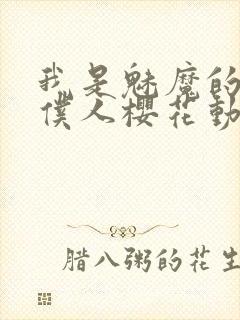 我是魅魔的
僕人櫻花動
腊八粥的花生